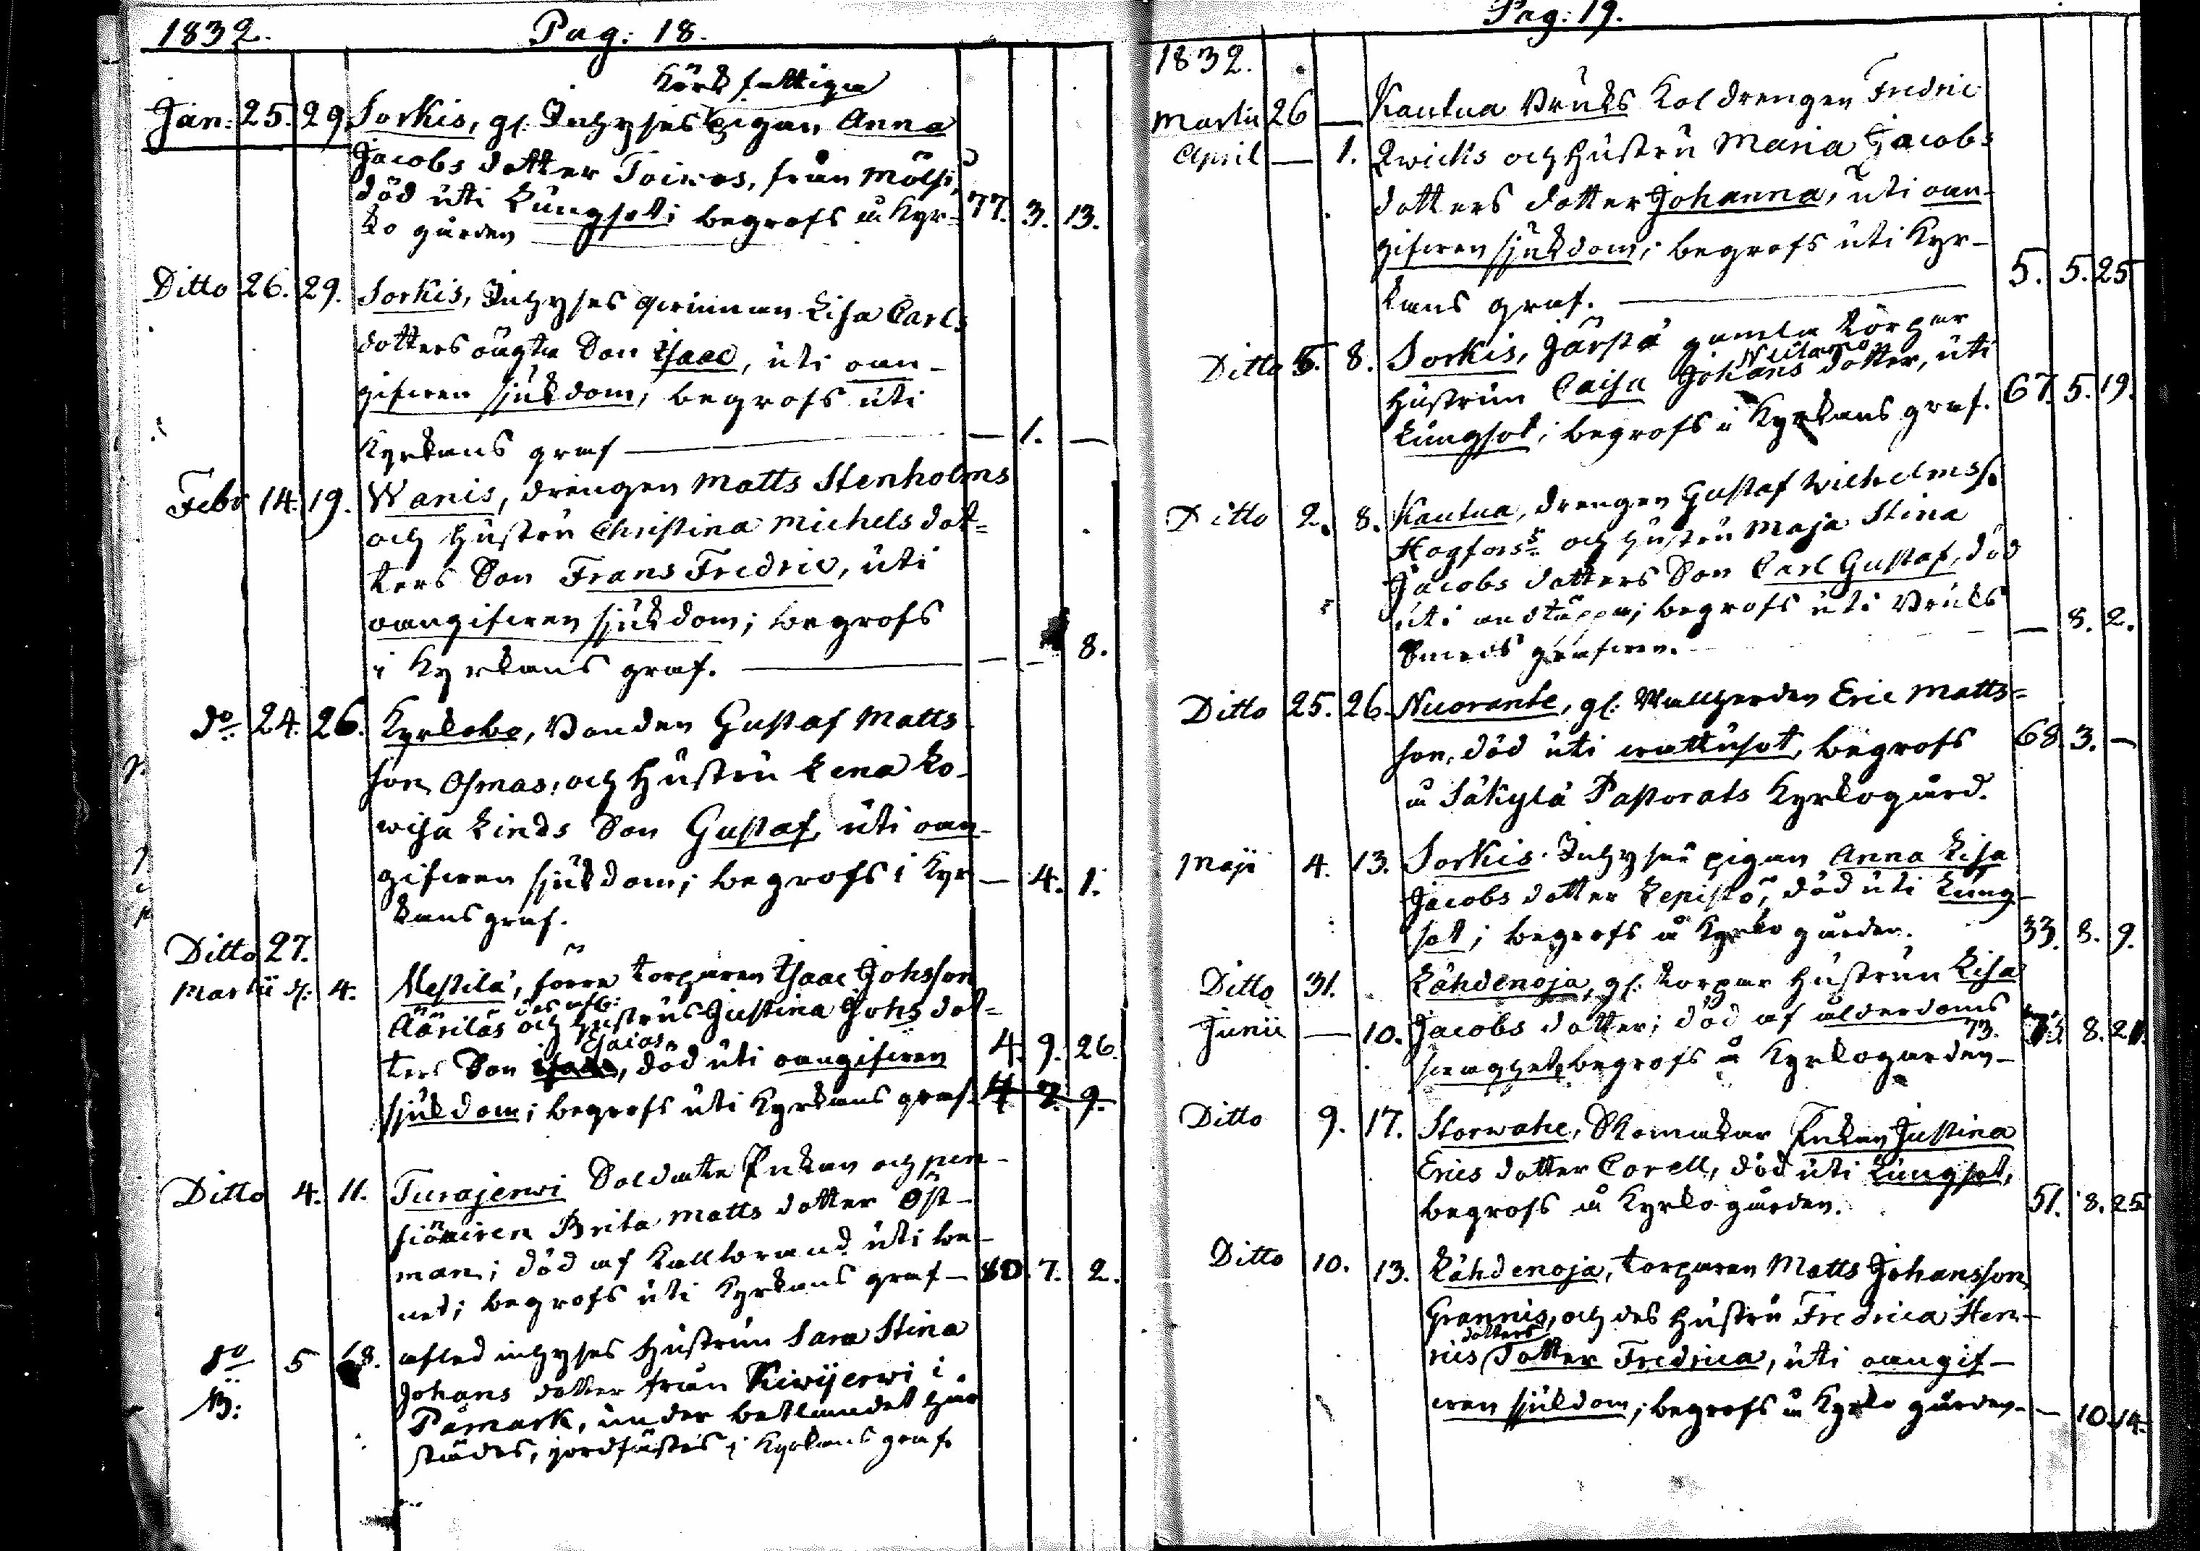 1832. Pag: 18.
Kyrk fattiga
Jan: 25. 29. Sorkis, gl. Inhyses pigan Anna
Jacobs dotter Toivos, från Mölsi,
död uti Lungsot; begrofs å Kyr- 77. 3. 13.
ko gården
Ditto 26. 29. Sorkis, Inhyses qwinnan Lisa Carls
dotters oägta Son Isaac, uti oan-
gifwen sjukdom; begrofs uti
Kyrkans graf — 1. —
Febr 14. 19. Wanis, drengen Matts Stenholms
och hustru Christina Michels dot=
ters Son Frans Fredric, uti
oangifwen sjukdom; begrofs
i Kyrkans graf. — — 8.
do 24. 26. Kyrkobo, Bonden Gustaf Matts
son Osmas, och Hustru Lena Lo-
wisa Linds Son Gustaf, uti oan-
gifwen sjukdom; begrofs i Kyr — 4. 1.
kans graf.
Ditto 27.
Martii d: 4. Mestilä, förra torparen Isaac Johsson
des afl:
Äärilás och hustrus Justina Johs dot=
Esaias
ters Son Isaac, död uti oangifwen 4. 9. 26.
sjukdom; begrofs uti Kyrkans graf. 4 7. 9.
Ditto 4. 11. Turajerwi Soldate Enkan och pen-
sionairen Brita Matts dotter Öst-
man; död af Kallbrand uti be-
net; begrofs uti Kyrkans graf — 80. 7. 2.
do 5 18. afled inhyses hustrun Sara Stina
NB: Johans dotter från Kiwijerwi i
Påmark, under betlandet här
städes, jordfästes i Kyrkans graf.
Pag: 19.
1832.
Martii 26 — Kautua Bruks Kol drengen Fredric
April — 1. Qwicks och Hustru Maria Jacobs
dotters dotter Johanna, uti oan-
gifwen sjukdom; begrofs uti Kyr-
kans graf. 5. 5. 25
Ditto 5. 8. Sorkis, Järstä gamla torpar
hustrun Caisa Johans dotter, uti
Lungsot; begrofs i Kyrkans graf. 67. 5. 19.
Ditto 2. 8. Kautua, drengen Gustaf Wilhelmss.
Hogforss och hustru Maja Stina
Jacobs dotters Son Carl Gustaf, död
uti andtäppa; begrofs uti Bruks
Smeds grafwen. — 8. 2.
Ditto 25. 26. Nuorante, gl. Wallherden Eric Matts=
son, död uti wattusot, begrofs 68. 3. —
å Säkylä Pastorats Kyrkogård.
Maji 4. 13. Sorkis Inhyses pigan Anna Lisa
Jacobs dotter Lepistö, död uti Lung-
sot; begrofs å Kyrko gården. 33. 8. 9.
Ditto 31. Lähdenoja, gl. torpar hustrun Lisa
Junii — 10. Jacobs dotter; död af ålderdoms
73.
swaghet, begrofs å Kyrkogården — 73. 8. 21.
Ditto 9. 17. Storwahe, Skomakar Enkan Justina
Erics dotter Corell, död uti Lungsot,
begrofs å Kyrko gården. 51. 8. 25
Ditto 10. 13. Lähdenoja, torparen Matts Johansson
Grannis, och des hustru Fredrica Hen-
dotters
rics Dotter Fredrica, uti oangif-
wen sjukdom; begrofs å Kyrko gården — — 10. 14.